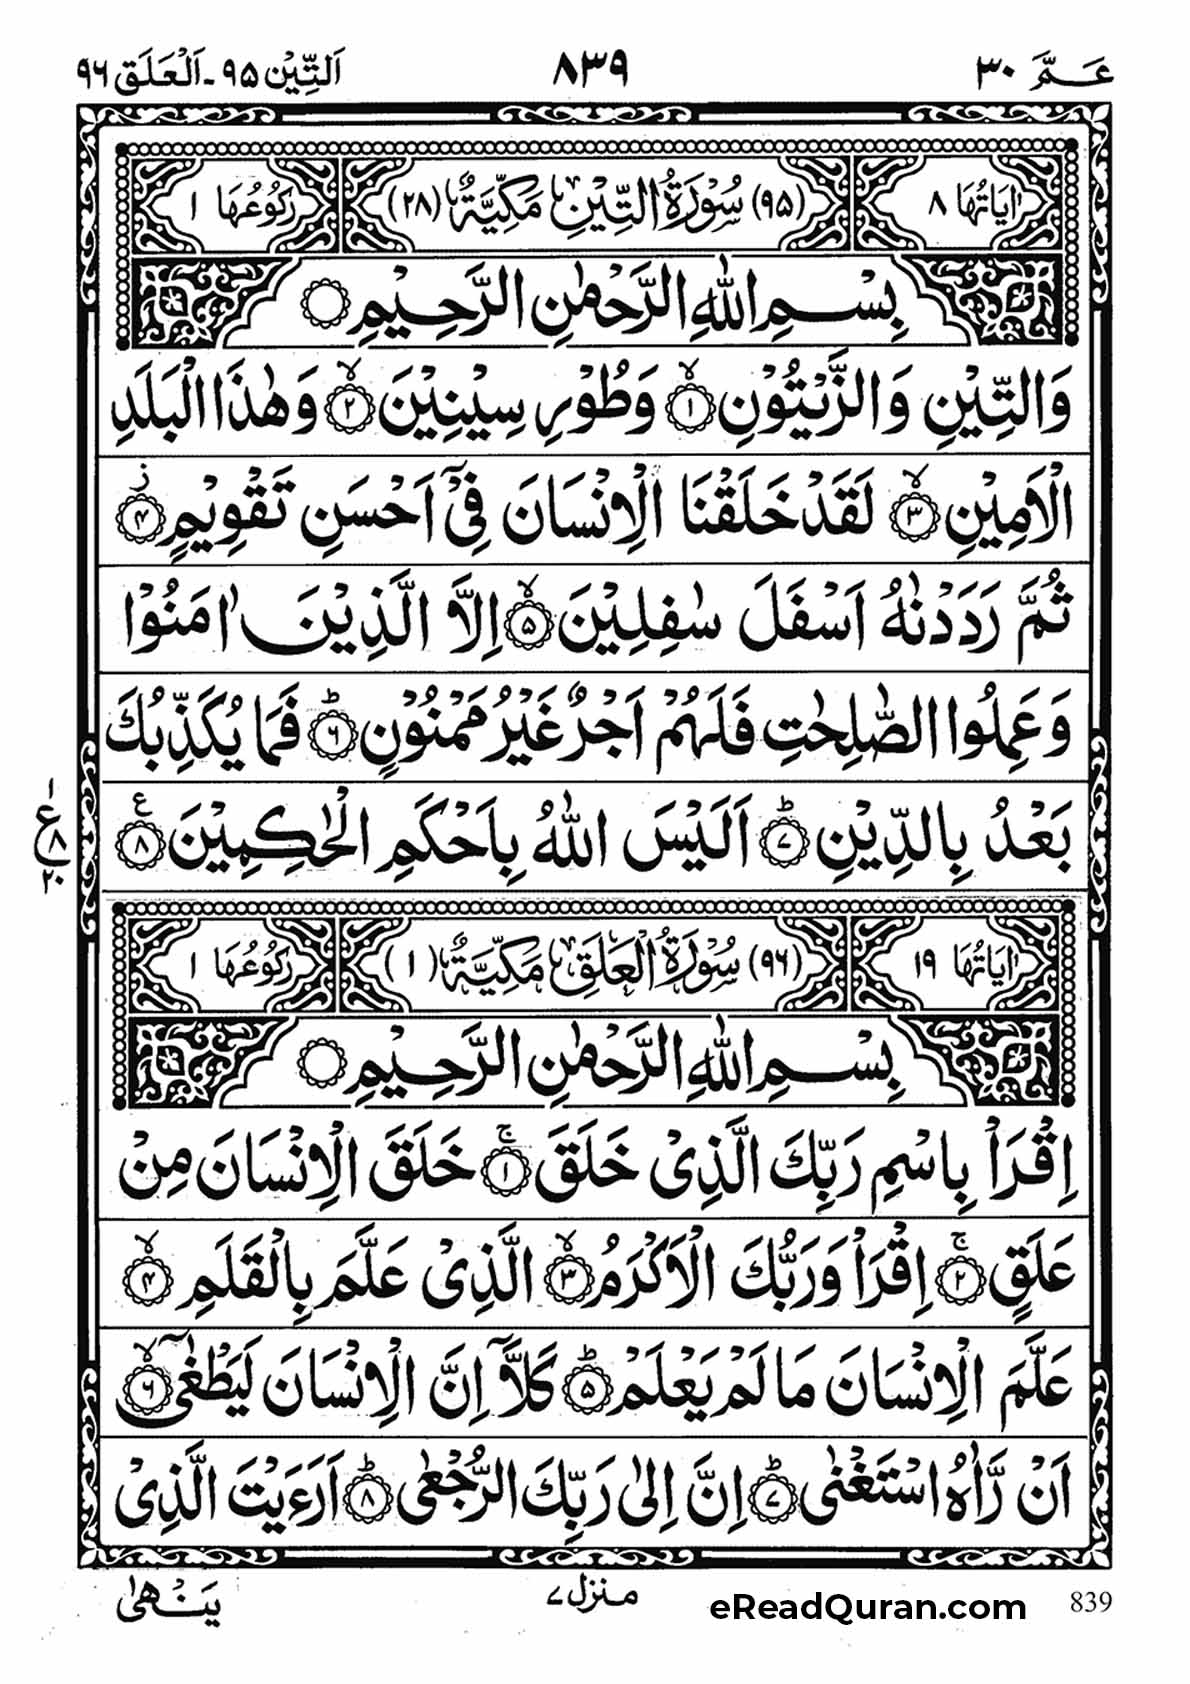 عَـمَّ ٣٠
٨٣٩
اَلتِّيْن ٩٥ - اَلْعَلَق ٩٦
اٰيَاتُهَا ٨
(٩٥) سُوْرَةُ التِّيْنِ مَكِّيَّةٌ (٢٨)
رُكُوْعُهَا ١
بِسْمِ اللّٰهِ الرَّحْمٰنِ الرَّحِيْمِ
وَالتِّيْنِ وَالزَّيْتُوْنِ ۙ﴿١﴾ وَطُوْرِ سِيْنِيْنَ ۙ﴿٢﴾ وَهٰذَا الْبَلَدِ
الْاَمِيْنِ ۙ﴿٣﴾ لَقَدْ خَلَقْنَا الْاِنْسَانَ فِيْٓ اَحْسَنِ تَقْوِيْمٍ ﴿٤﴾ز
ثُمَّ رَدَدْنٰهُ اَسْفَلَ سٰفِلِيْنَ ۙ﴿٥﴾ اِلَّا الَّذِيْنَ اٰمَنُوْا
وَعَمِلُوا الصّٰلِحٰتِ فَلَهُمْ اَجْرٌ غَيْرُ مَمْنُوْنٍ ؕ﴿٦﴾ فَمَا يُكَذِّبُكَ
بَعْدُ بِالدِّيْنِ ؕ﴿٧﴾ اَلَيْسَ اللّٰهُ بِاَحْكَمِ الْحٰكِمِيْنَ ﴿٨﴾ع
١
ع ٨
٢٠
اٰيَاتُهَا ١٩
(٩٦) سُوْرَةُ الْعَلَقِ مَكِّيَّةٌ (١)
رُكُوْعُهَا ١
بِسْمِ اللّٰهِ الرَّحْمٰنِ الرَّحِيْمِ
اِقْرَاْ بِاسْمِ رَبِّكَ الَّذِيْ خَلَقَ ۚ﴿١﴾ خَلَقَ الْاِنْسَانَ مِنْ
عَلَقٍ ۚ﴿٢﴾ اِقْرَاْ وَرَبُّكَ الْاَكْرَمُ ۙ﴿٣﴾ الَّذِيْ عَلَّمَ بِالْقَلَمِ ۙ﴿٤﴾
عَلَّمَ الْاِنْسَانَ مَا لَمْ يَعْلَمْ ؕ﴿٥﴾ كَلَّآ اِنَّ الْاِنْسَانَ لَيَطْغٰٓى ۙ﴿٦﴾
اَنْ رَّاٰهُ اسْتَغْنٰى ؕ﴿٧﴾ اِنَّ اِلٰى رَبِّكَ الرُّجْعٰى ؕ﴿٨﴾ اَرَءَيْتَ الَّذِيْ
يَنْهٰى
منزل ٧
eReadQuran.com
839